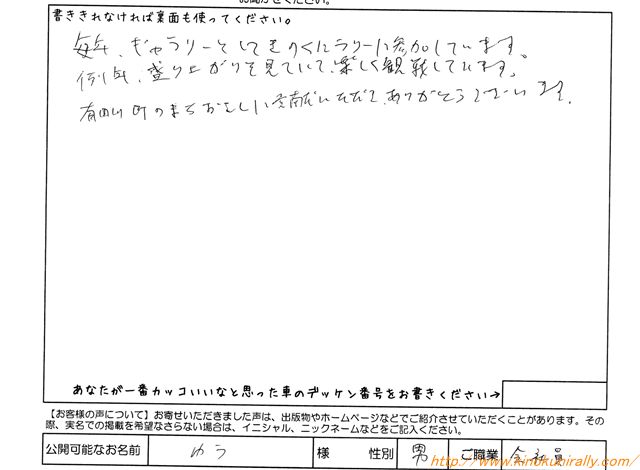 お聞かせください。
書ききれなければ裏面も使ってください。
毎年、ギャラリーとしてきのくにラリーに参加しています。
例年、盛り上がりを見ていて、楽しく観戦しています。
有田川町のまちおこしに貢献いただいて、ありがとうございます。
あなたが一番カッコいいなと思った車のデッケン番号をお書きください→
【お客様の声について】お寄せいただきました声は、出版物やホームページなどでご紹介させていただくことがあります。その
際、実名での掲載を希望なさらない場合は、イニシャル、ニックネームなどをご記入ください。
公開可能なお名前 ゆう 様 性別 男 ご職業 会社員
http://www.kinokunirally.com/